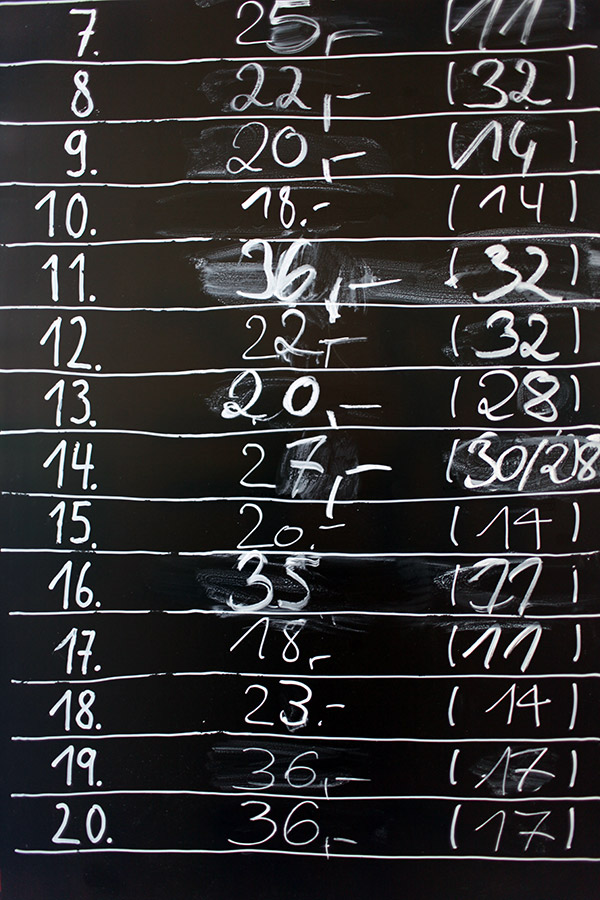 7. 25,- (11)
8 22,- (32)
9. 20,- (14)
10. 18.- (14)
11. 36,- (32)
12. 22,- (32)
13. 20,- (28)
14. 27,- (30/28
15. 20.- (14)
16. 35 (11)
17. 18,- (11)
18. 23.- (14)
19. 36,- (17)
20. 36,- (17)